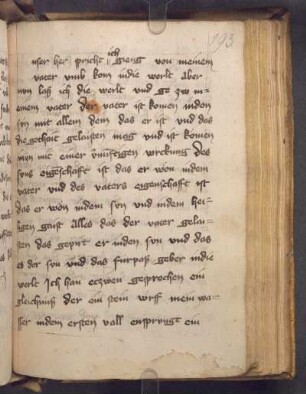 193
ich
unser her spricht gieng von meinem
vater und kom in die werlt aber
nun laß ich die werlt und ge zw m-
einem vater Der vater ist komen in den
sun mit allem dem das er ist und das
die gothait gelaisten mag und ist komen
mit einer vernüftigen wrckung Des
suns eigeschaft ist das er won in dem
vater und des vaters eigenschaft ist
das er won in dem sun und in dem hei-
ligen gaist Alles das der vater gelai-
sten das gepirt er in den sun und das
es der sun und das furpas geber in die
werlt Ich han eczwen gesprochen ein
gleichnuß der ein stein wrff in ein wa-
sser in dem ersten vall enspringt ein